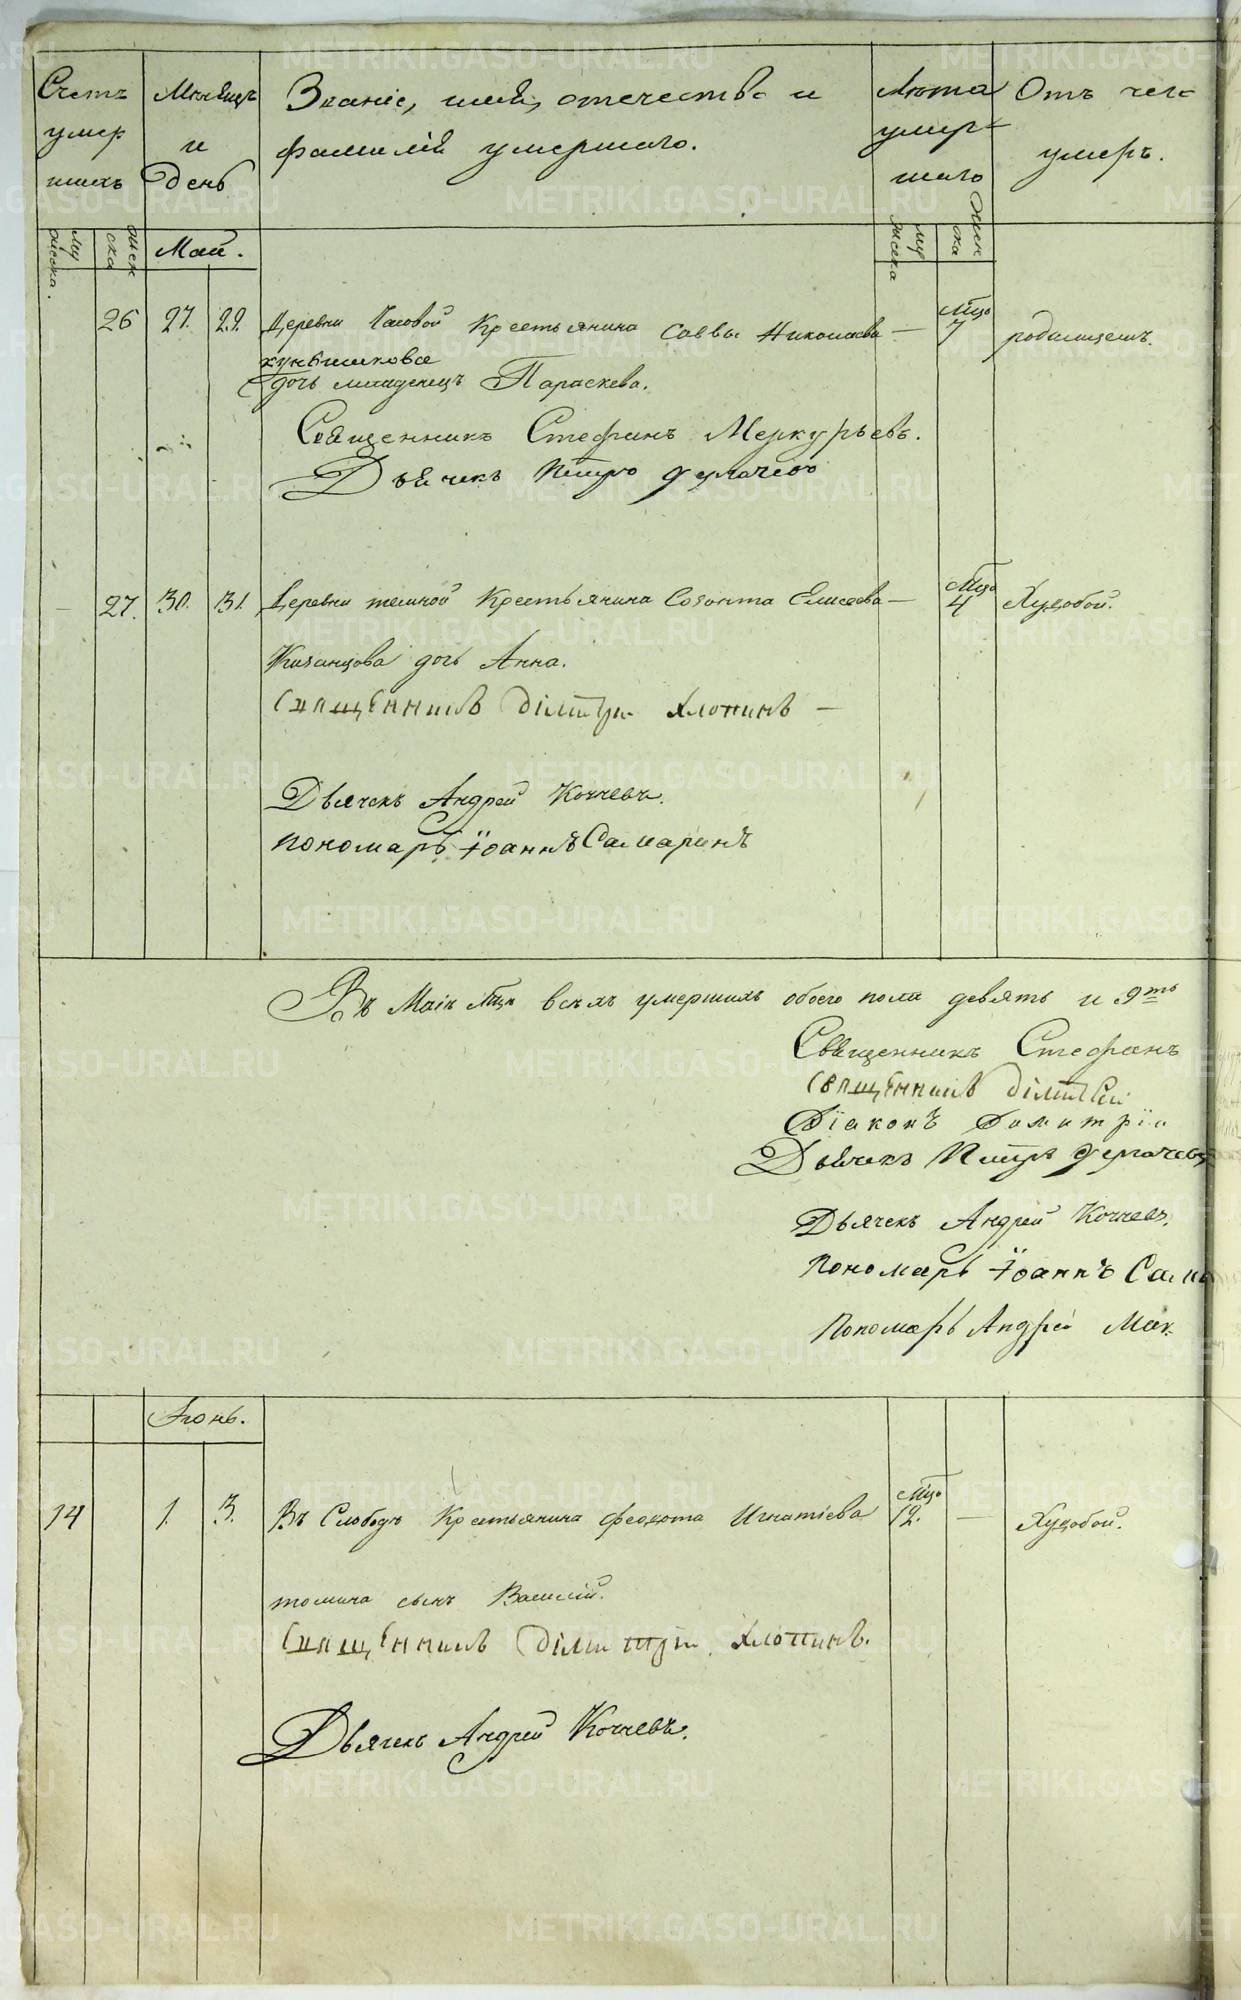 Счетъ умер шихъ
Мѣсяцъ и День
Званіе, имя, отечество и
фамилія умершаго.
Лѣта умер- шаго
Отъ чего умеръ.
му жеска.
жен ска
Май.
му жеска
жен ска
26 27. 29. Деревни Часовой Крестьянина Саввы Николаева — Мцо 7 родимцемъ.
дочь младенецъ Параскева.
Священникъ Стефанъ Меркурьевъ.
Дьячекъ Петръ Дергачевъ
— 27. 30. 31. Деревни темной Крестьянина Созонта Елисеева — Мцо 4 Худобой.
Казанцова дочь Анна.
Священникъ Димитрій Хлопинъ —
Дьячекъ Андрей Кочневъ.
Пономарь Іоаннъ Самаринъ
Въ Маіѣ Мцѣ всѣхъ умершихъ обоего пола девять и 9ть
Священникъ Стефанъ
Священникъ Димитрій
Діаконъ Димитрій
Дьячекъ Петръ Дергачевъ
Дьячекъ Андрей Кочневъ.
Пономарь Іоаннъ Сама
Пономарь Андрей Мак
Іюнь.
14 1. 3. Въ Слободѣ Крестьянина Феодота Игнатіева Мцо 12. — Худобой.
томина сынъ Василій.
Священникъ Димитрій Хлопинъ.
Дьячекъ Андрей Кочневъ.
METRIKI.GASO-URAL.RU